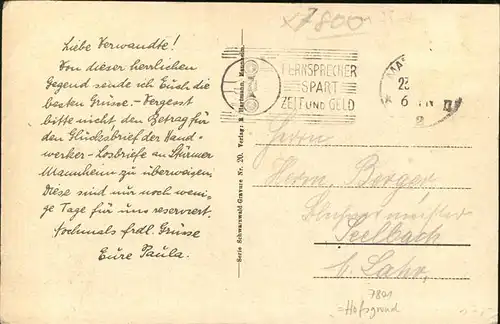 x7800
Liebe Verwandte!
Von dieser herrlichen
Gegend sende ich Euch die
besten Grüsse.- Vergesst
bitte nicht den Betrag für
den Glücksbrief der Hand-
werker-Losbriefe an Stürmer
Mannheim zu überweisen.
Diese sind nur noch weni-
ge Tage für uns reserviert.
Nochmals frdl. Grüsse
Eure Paula.
Serie Schwarzwald-Gravure Nr. 20. Verlag: E. Hartmann, Mannheim.
FERNSPRECHER
SPART
ZEIT UND GELD
MA
6
Herrn
Herm. Berger
Seelbach
b. Lahr,
7801
=Hofsgrund